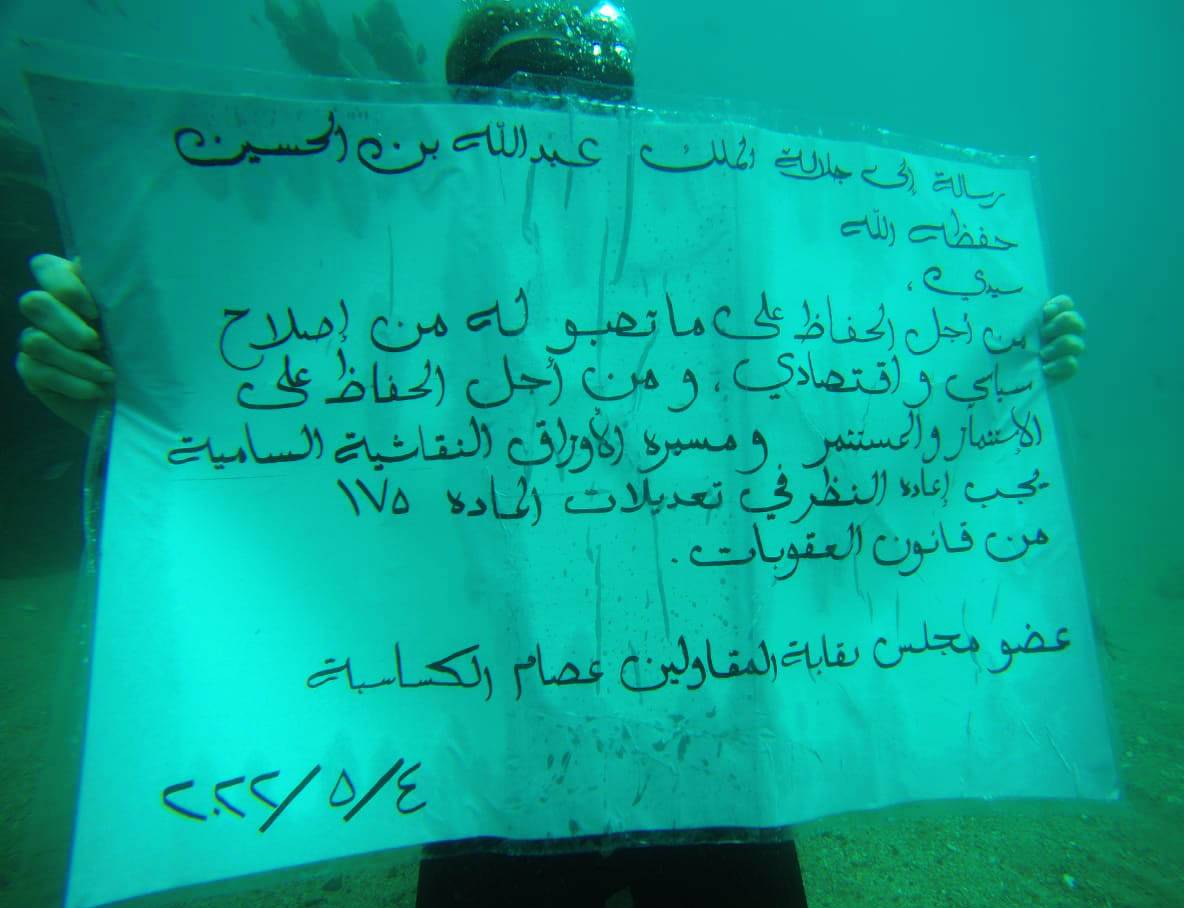 رسالة إلى جلالة الملك عبدالله بن الحسين
حفظه الله
سيدي ،
من أجل الحفاظ على ما تصبو له من إصلاح
سياسي و اقتصادي ، و من أجل الحفاظ على
الإستثمار والمستثمر و مسيره الأوراق النقاشية السامية
يجب إعاده النظر في تعديلات الماده ١٧٥
من قانون العقوبات .
عضو مجلس نقابة المقاولين عصام الكساسبة
٢٠٢٢/٥/٤